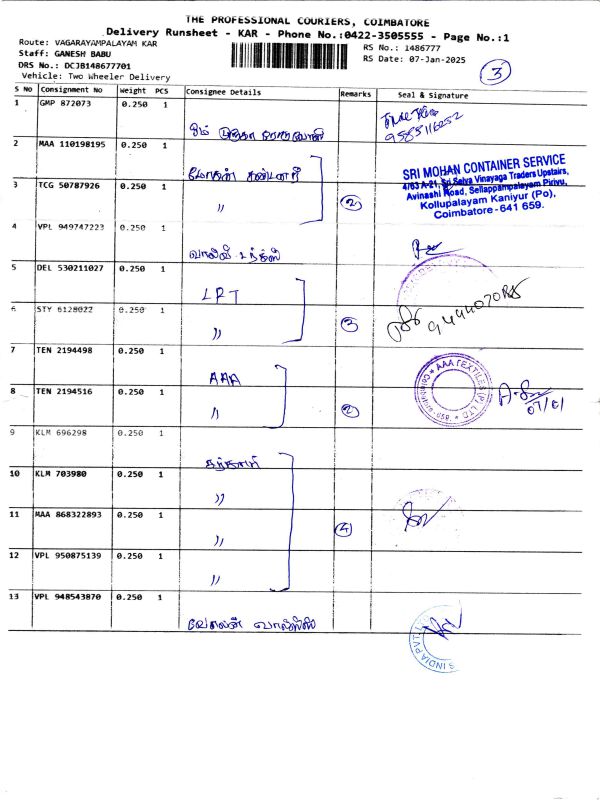 THE PROFESSIONAL COURIERS, COIMBATORE
Delivery Runsheet - KAR - Phone No.:0422-3505555 - Page No.:1
Route: VAGARAYAMPALAYAM KAR
Staff: GANESH BABU
DRS No.: DCJB148677701
Vehicle: Two Wheeler Delivery
RS No.: 1486777
RS Date: 07-Jan-2025
3
S No Consignment No Weight PCS Consignee Details Remarks Seal & Signature
1 GMP 872073 0.250 1
ஓம்
2 MAA 110198195 0.250 1
மோகன்
3 TCG 50787926 0.250 1
" 2
SRI MOHAN CONTAINER SERVICE
4/63 A-21, Sri Selva Vinayaga Traders Upstairs,
Avinashi Road, Sellappampalayam Pirivu,
Kollupalayam Kaniyur (Po),
Coimbatore - 641 659.
4 VPL 949747223 0.250 1
5 DEL 530211027 0.250 1
LRT
6 STY 6128022 0.250 1
" 3
7 TEN 2194498 0.250 1
AAA
8 TEN 2194516 0.250 1
" 2
AAA TEXTILES (P) LTD
07/01
9 KLM 696298 0.250 1
10 KLM 703980 0.250 1
"
11 MAA 868322893 0.250 1
" 4
12 VPL 950875139 0.250 1
"
13 VPL 948543870 0.250 1
S INDIA PVT.